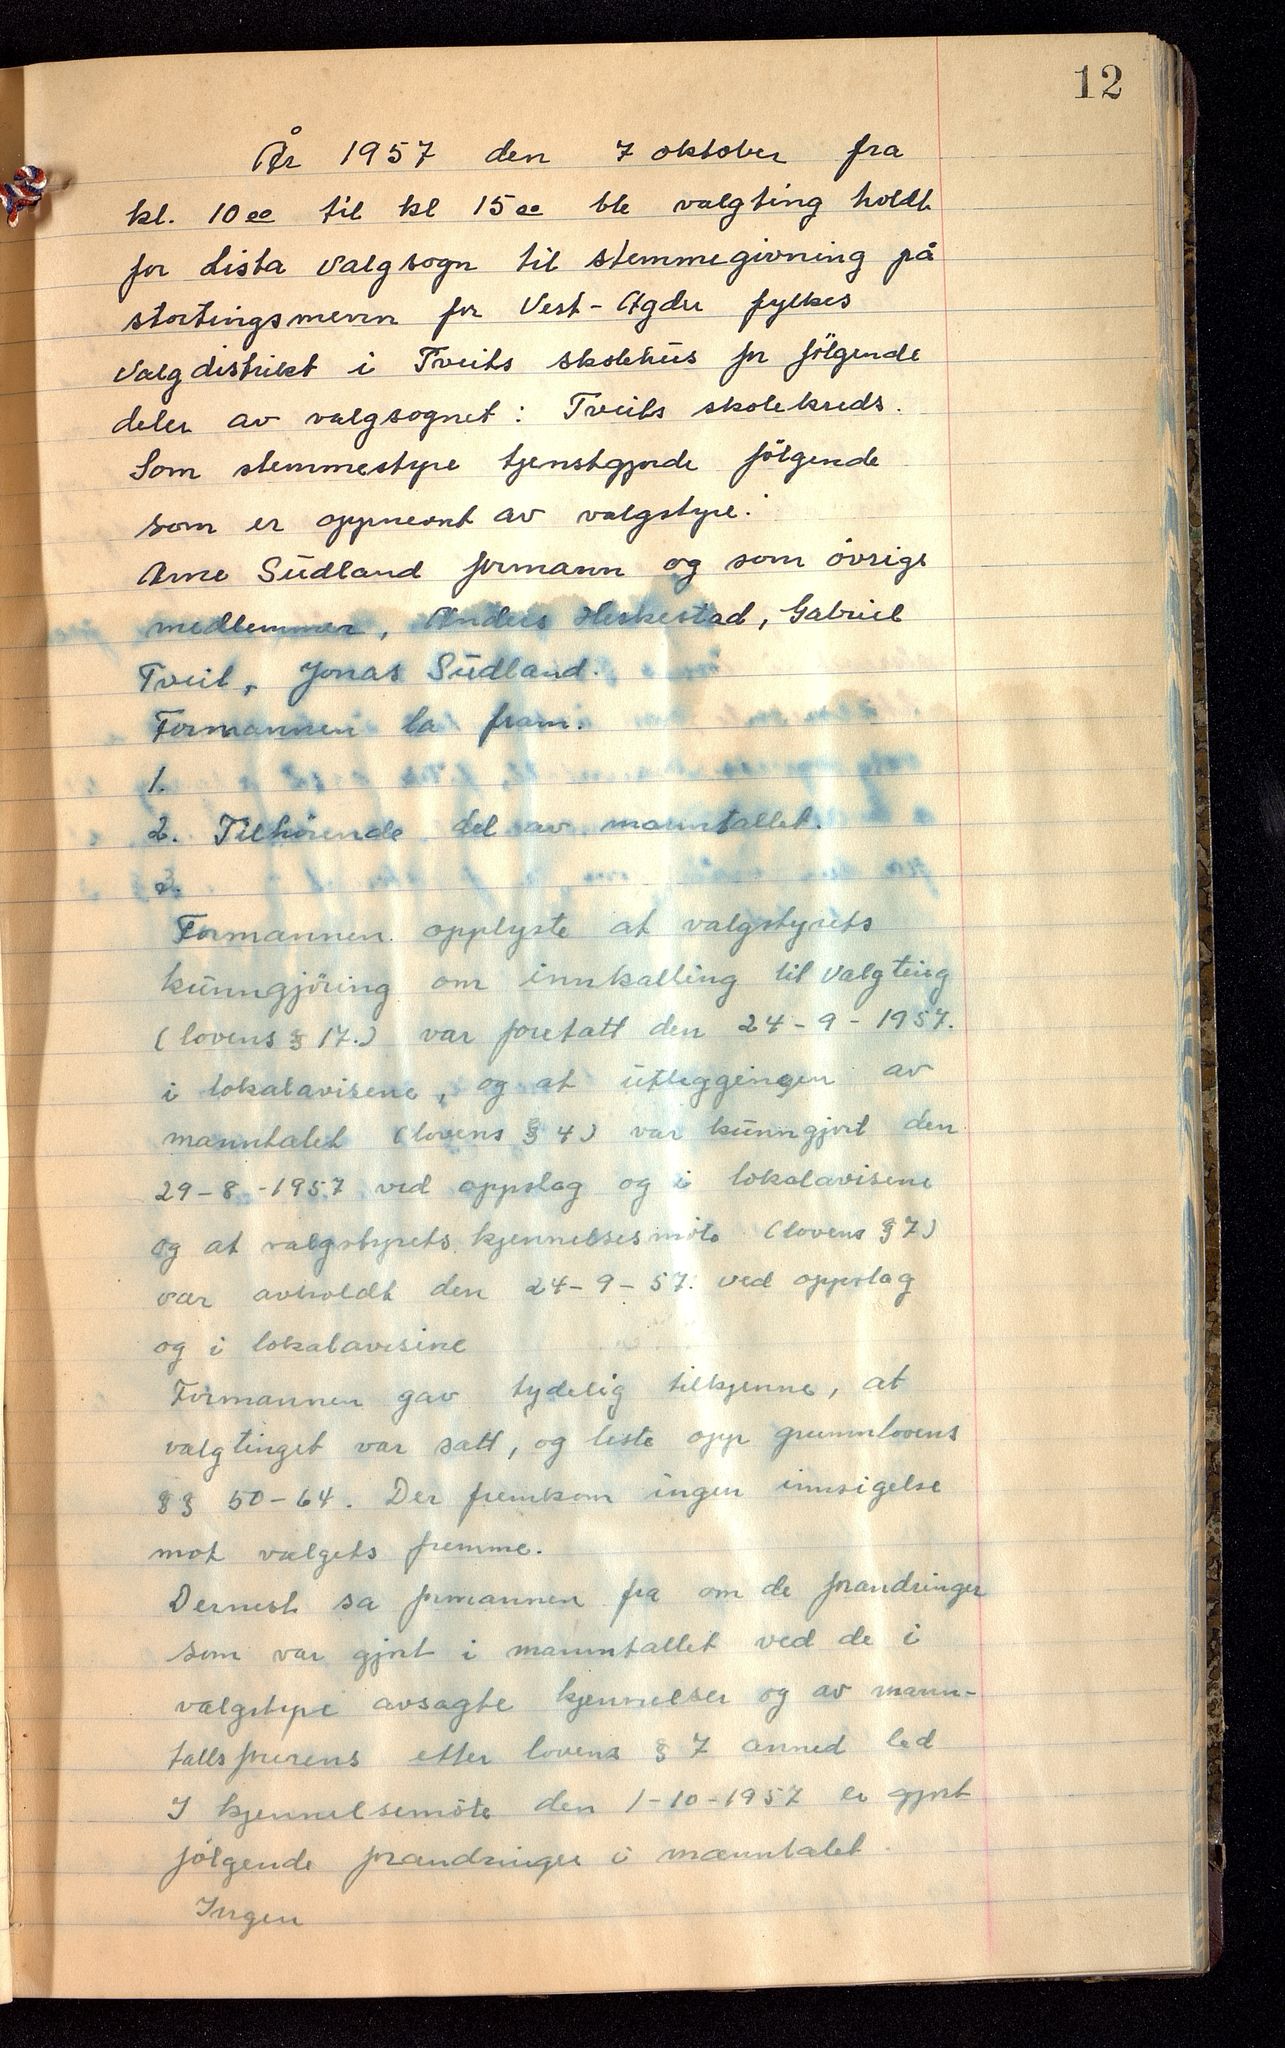 12
År 1957 den 7 oktober fra
kl. 10 00 til kl 15 00 ble valgting holdt
for Lista valgsogn til stemmegivning på
stortingsmenn for Vest-Agder fylkes
valgdistrikt i Tveits skolehus for følgende
deler av valgsognet: Tveits skolekreds.
Som stemmestyre tjenstgjorde følgende
som er oppnevnt av valgstyre:
Arne Sudland formann og som øvrige
medlemmer, Anders Heskestad, Gabriel
Tveit, Jonas Sudland.
Formannen la fram:
1.
2. Tilhørende del av manntallet.
3.
Formannen opplyste at valgstyrets
kunngjøring om innkalling til valgting
(lovens § 17.) var foretatt den 24-9-1957.
i lokalavisene, og at utleggingen av
manntalet (lovens § 4) var kunngjort den
29-8-1957 ved oppslag og i lokalavisene
og at valgstyrets kjennelsesmøte (lovens § 7)
var avholdt den 24-9-57. ved oppslag
og i lokalavisene
Formannen gav tydelig tilkjenne, at
valgtinget var satt, og leste opp grunnlovens
§§ 50-64. Der fremkom ingen innsigelse
mot valgets fremme.
Dernest sa formannen fra om de forandringer
som var gjort i manntallet ved de i
valgstyre avsagte kjennelser og av mann-
tallsførerens etter lovens § 7 anned led
I kjennelsemøte den 1-10-1957 er gjort
følgende forandringer i manntalet.
Ingen